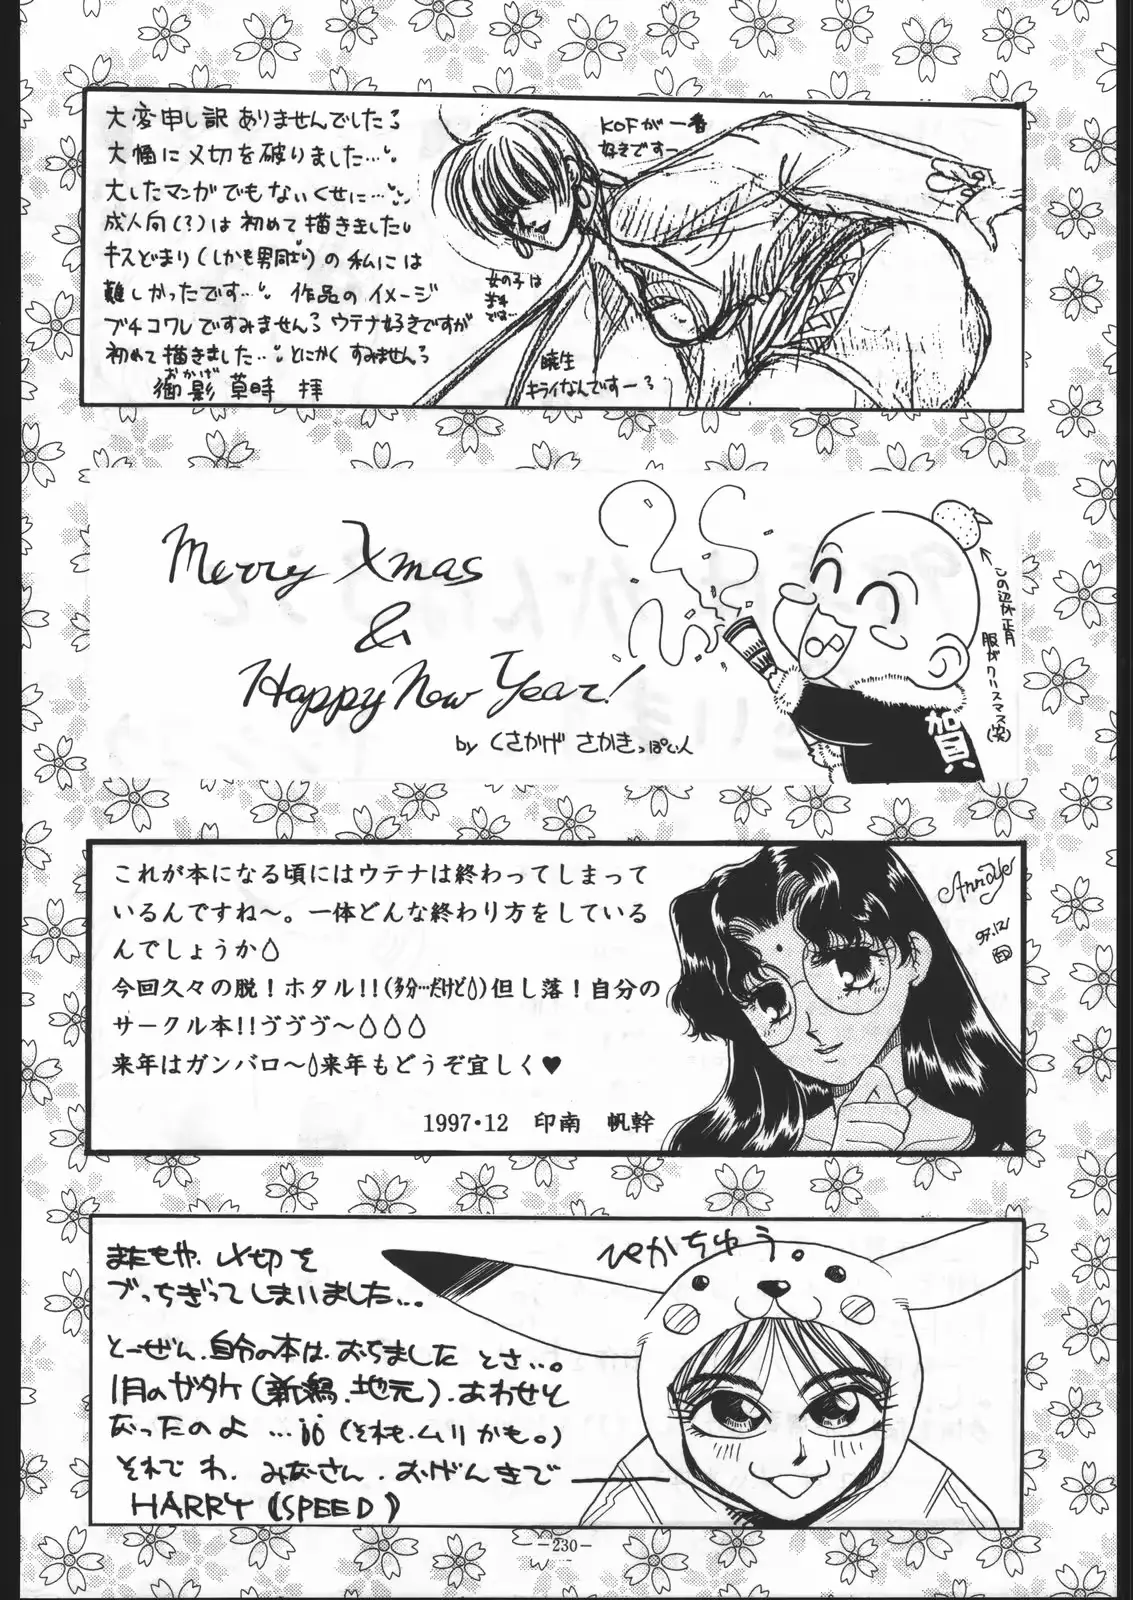 大変申し訳ありませんでした
大幅に〆切を破りました…
大したマンガでもないくせに…
成人向(?)は初めて描きました
キスどまり(しかも男同士)の私には
難しかったです… 作品のイメージ
ブチコワレですみません ウテナ好きですが
初めて描きました… とにかくすみません
おかげ
御影 草時 拝
KOFが一番
好きですー
女の子は
暁生
キライなんですー
Merry Xmas
&
Happy New Year!
by くさかげ さかきっぽい人
この辺が正月
服がクリスマス(笑)
賀
これが本になる頃にはウテナは終わってしまって
いるんですね〜。一体どんな終わり方をしている
んでしょうか
今回久々の脱!ホタル!!(多分…だけど)但し落!自分の
サークル本!!ヴヴヴ〜
来年はガンバロ〜来年もどうぞ宜しく♥
1997・12 印南 帆幹
97.12/
印
またもや、〆切を
ブっちぎってしまいました...
とーぜん、自分の本は、おちました とさ...。
1月のガタケ(新潟、地元)、あわせと
なったのよ …(それも、ムリかも。)
それでわ、みなさん、おげんきで
HARRY (SPEED)
ぴかちゅう。
-230-